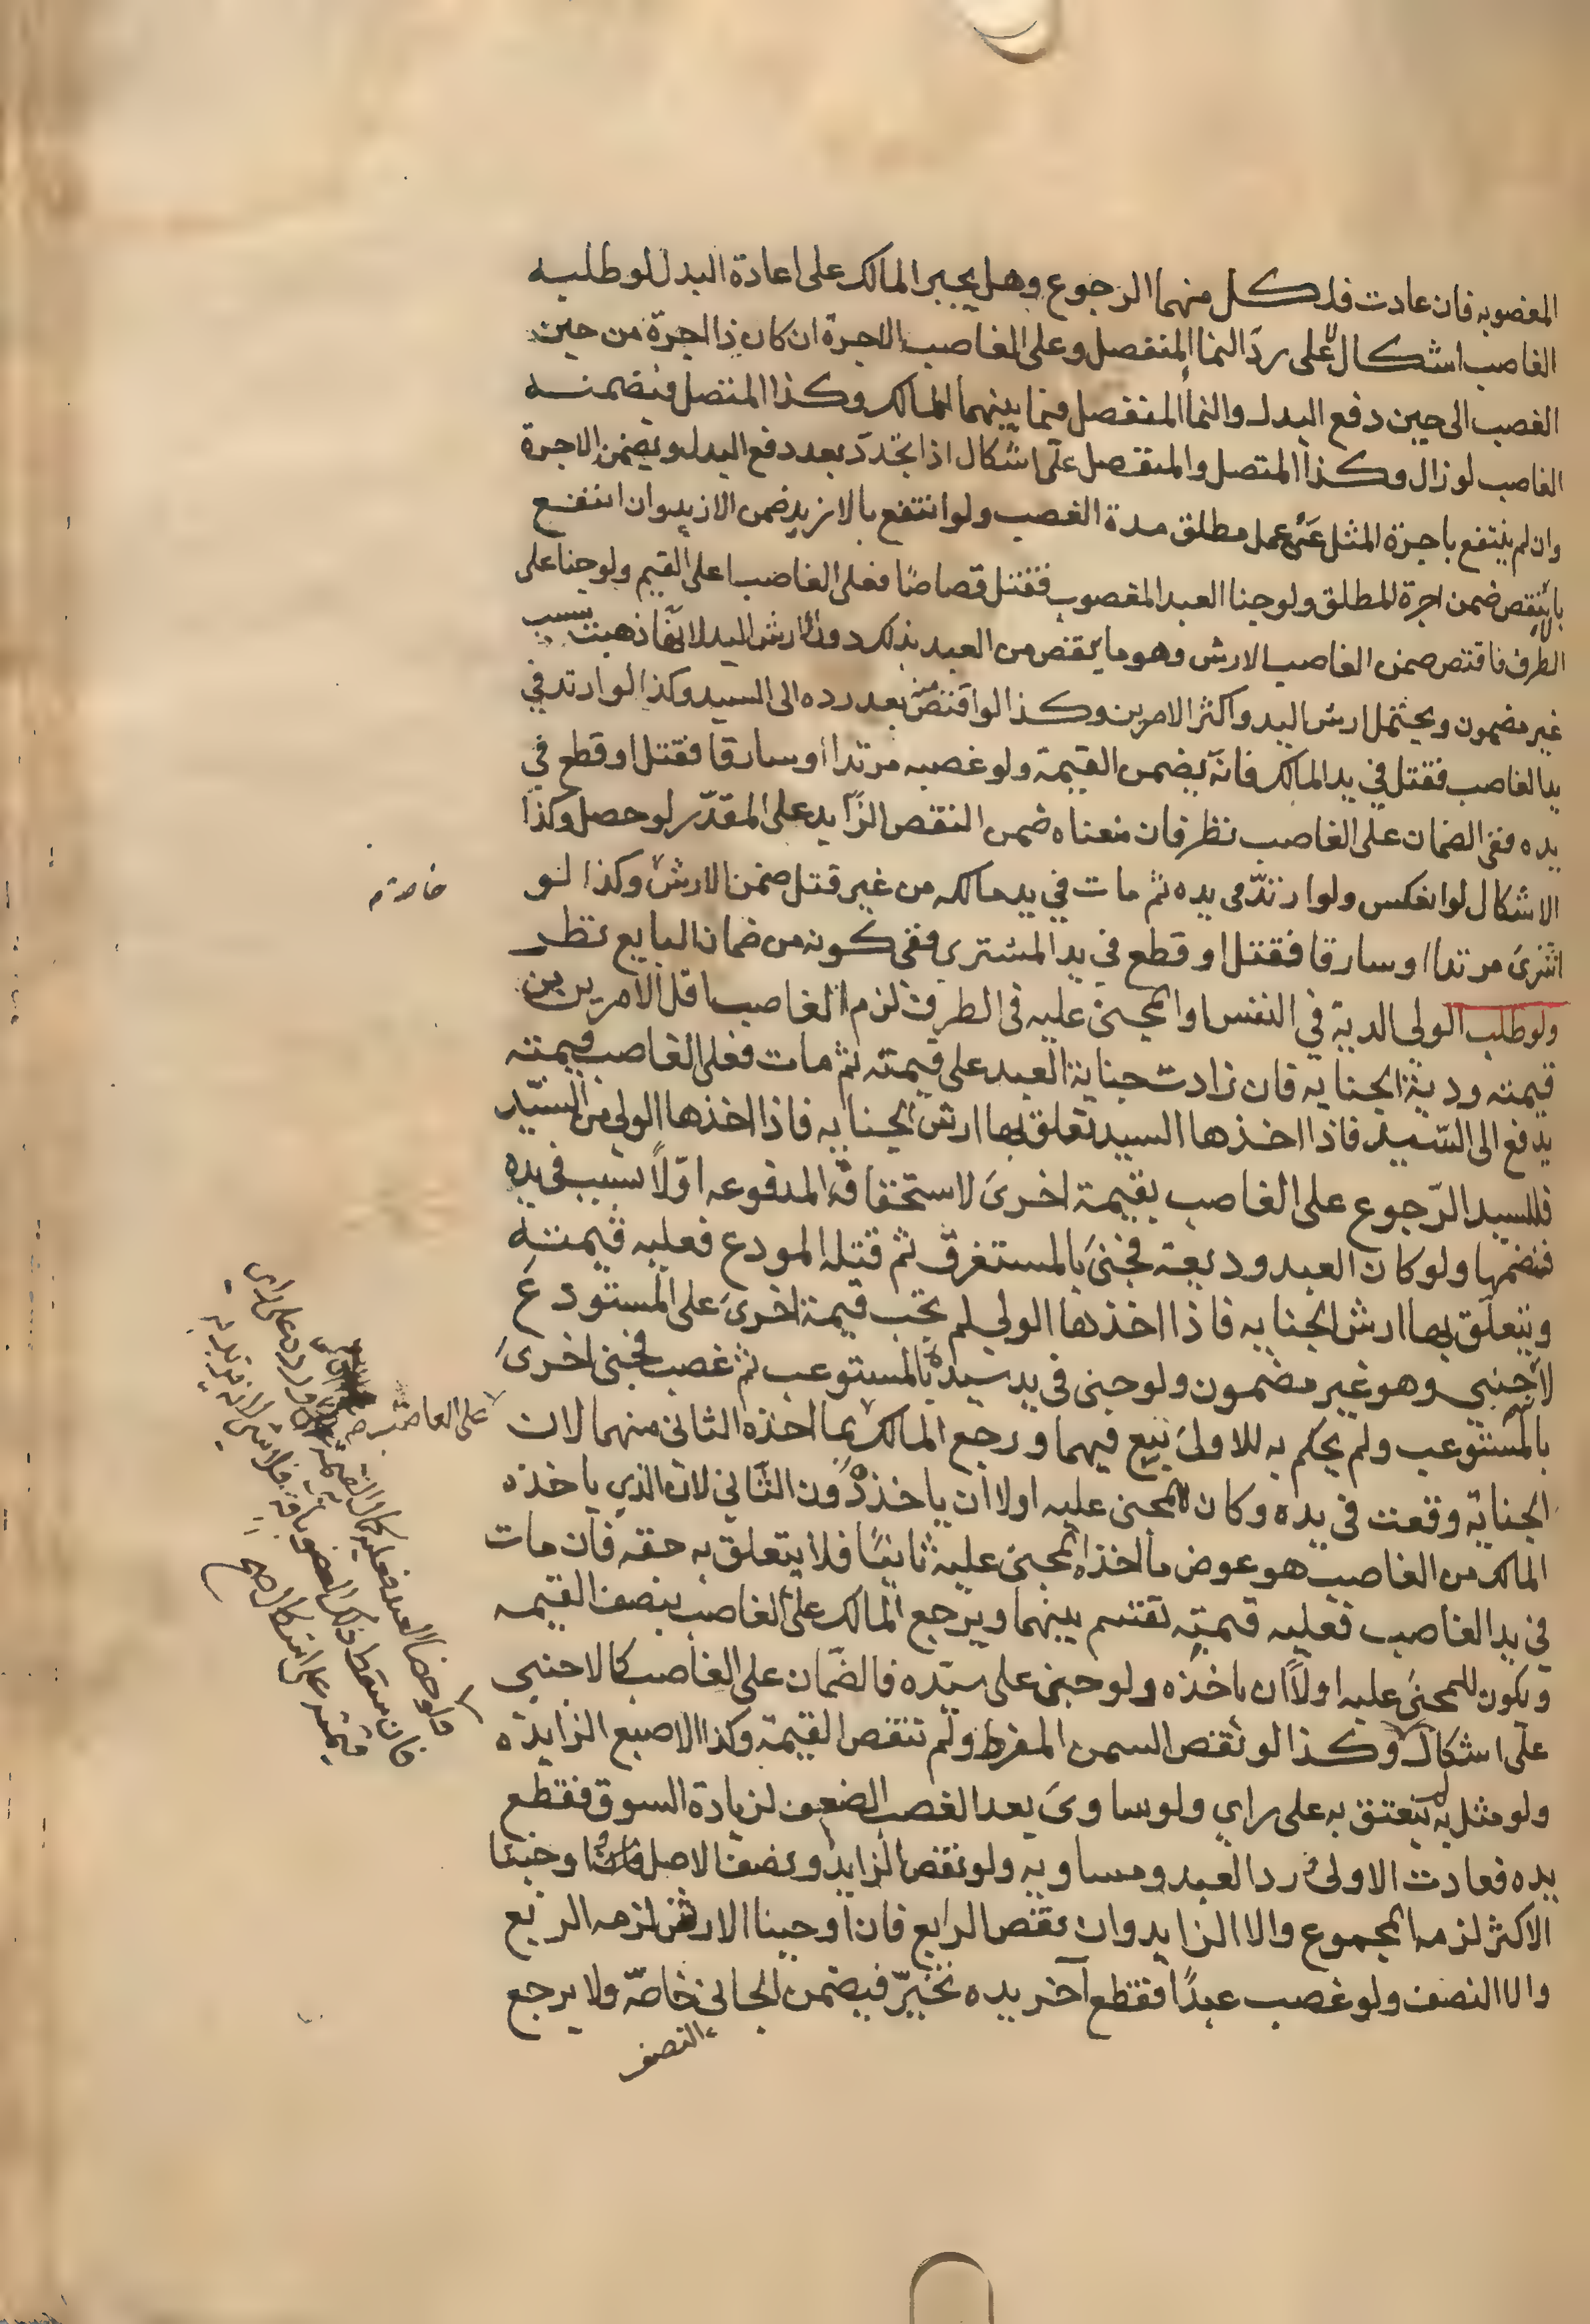 المغصوبه فان عادت فلكل منهما الرجوع وهل يجبر المالك على اعادة البدل لو طلبه
الغاصب اشكال لا على ردّ النماا المنفصل وعلى الغاصب الاجرة ان كان ذا اجرة من حين
الغصب الى حين دفع البدل والنماأ المنفصل فيما بينهما للمالك وكذا المتصل فيضمنه
الغاصب لو زال وكذا المتصل والمنفصل على اشكال اذا تجدّد بعد دفع البدل ويضمن الاجرة
وان لم ينتفع باجرة المثل عن عمل مطلق مدة الغصب ولو انتفع بالازيد ضمن الازيد وان انتفع
بالانقص ضمن اجرة المطلق ولو جنا العبد المغصوب فقتل قصاصًا فعلى الغاصب اعلى القيم ولو جنا على
الطرف فاقتص ضمن الغاصب الارش وهو ما ينقص من العبد بذلك دون ارش اليد لانّها ذهبت بسبب
غير مضمون ويحتمل ارش اليد واكثر الامرين وكذا لو اقتصّ منه بعد رده الى السيد وكذا لو ارتد في
يد الغاصب فقتل في يد المالك فانّه يضمن القيمة ولو غصبه مرتدا او سارقا فقتل او قطع في
يده ففي الضمان على الغاصب نظر فان منعناه ضمن النقص الزّايد على المقدّر لو حصل وكذا
الاشكال لو انعكس ولو ارتدّ في يده ثم مات في يد مالكه من غير قتل ضمن الارش وكذا لو
اشترى مرتدا او سارقا فقتل او قطع في يد المشتري ففي كونه من ضمان البايع نظر
ولو طلب الولي الدية في النفس او المجني عليه في الطرف لزم الغاصب اقل الامرين من
قيمته ودية الجنايه فان زادت جناية العبد على قيمته ثم مات فعلى الغاصب قيمته
يدفع الى السّيد فاذا اخذها السيد تعلق بها ارش الجنايه فاذا اخذها الولي من السيّد
فللسيد الرّجوع على الغاصب بقيمة اخرى لاستحقاق المدفوعه اوّلاً بسبب في يده
فيضمنها ولو كان العبد وديعة فجنى بالمستغرق ثم قتله المودع فعليه قيمته
ويتعلّق بها ارش الجنايه فاذا اخذها الولي لم يجب قيمة اخرى على المستودع
لانّه جنى وهو غير مضمون ولو جنى في يد سيده بالمستوعب ثم غصب فجنى اخرى
بالمستوعب ولم يحكم به للاولى بيع فيهما ورجع المالك بما اخذه الثاني منهما لان
الجناية وقعت في يده وكان للمجني عليه اولا ان ياخذه دون الثاني لان الذي ياخذه
المالك من الغاصب هو عوض ما اخذه المجني عليه ثانيًا فلا يتعلق به حقه فان مات
في يد الغاصب فعليه قيمته تقسم بينهما ويرجع المالك على الغاصب بنصف القيمه
ويكون للمجنيّ عليه اولاً ان ياخذه ولو جنى على سيّده فالضّمان على الغاصب كالاجنبي
على اشكال وكذا لو نقص السمن المفرط ولم تنقص القيمة وكذا الاصبع الزايدة
ولو مثل به لم ينعتق به على راي ولو ساوى بعد الغصب الضعف لزيادة السوق فقطع
يده فعادت الاولى رد العبد ومساويه ولو نقص الزايد ونصف الاصل فان اوجبنا
الاكثر لزمه المجموع والا الزايد وان نقص الرابع فان اوجبنا الارش لزمه الربع
والا النصف ولو غصب عبدًا فقطع آخر يده تخيّر فيضمن الجاني خاصّة ولا يرجع
النصف
خاصة
على الغاصب
ولو خصا العبد فعليه كمال القيمة ورده على راي
فان سقط ذلك العضو بافة فلا شي لانه تزيد به
قيمته على اشكال صح